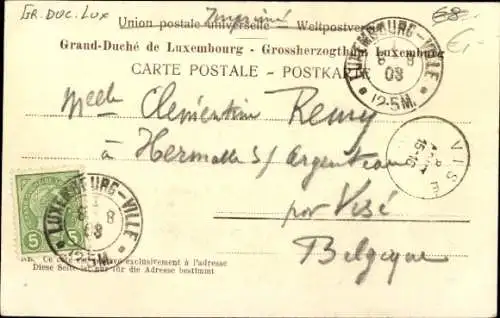 GR. DUC. LUX
Imprimé
68.-
€.-
Union postale universelle. — Weltpostverein
Grand-Duché de Luxembourg - Grossherzogthum Luxemburg
CARTE POSTALE - POSTKARTE
LUXEMBOURG-VILLE
8 8
03
12-5M.
Melle Clémentine Remy
à Hermalle s/ Argenteau
par Visé
Belgique
VISÉ
8
AOUT
15-16
5 5
LUXEMBOURG-VILLE
8 8
03
12-5M.
NB. Ce côté est réservé exclusivement à l'adresse
Diese Seite ist nur für die Adresse bestimmt